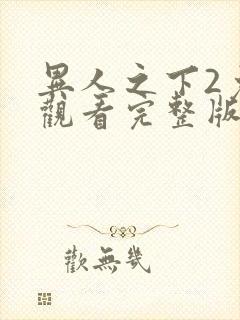 異人之下2
觀看完整版
歡無幾